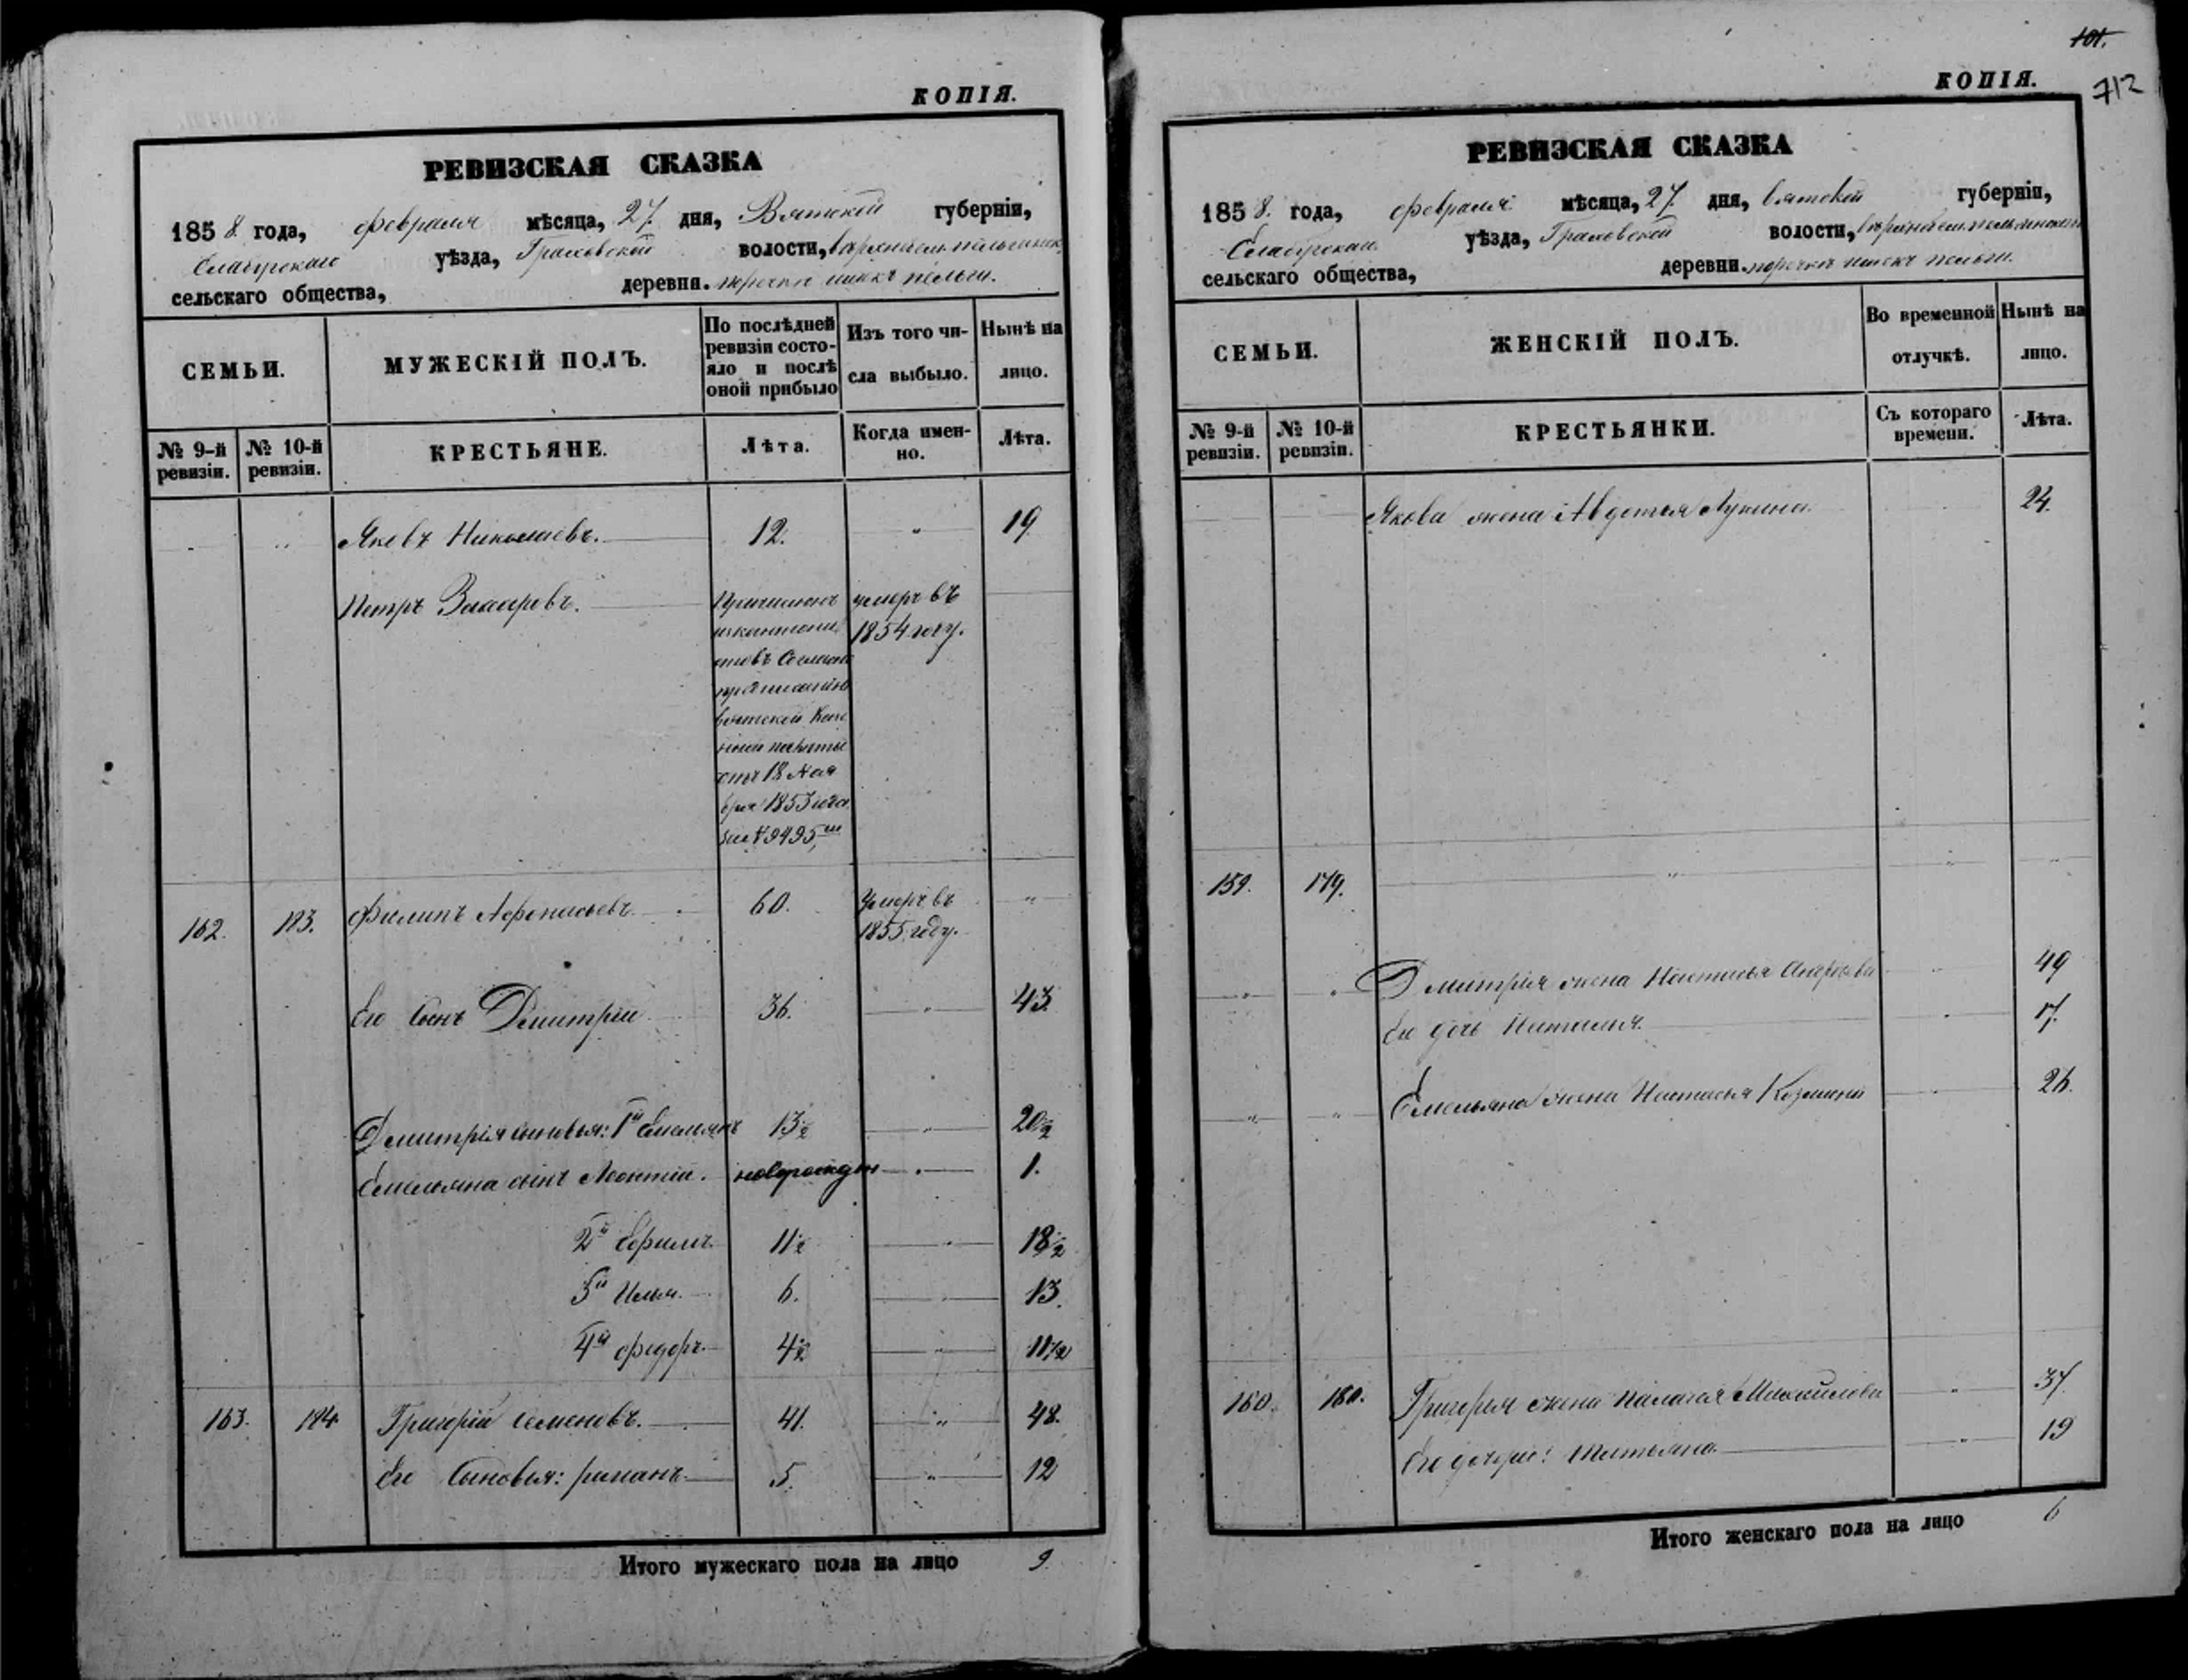 КОПІЯ.
РЕВИЗСКАЯ СКАЗКА
1858 года, февраля мѣсяца, 27 дня, Вятской губерніи,
Елабугскаго уѣзда, Граховской волости,
сельскаго общества, деревни.
СЕМЬИ.
МУЖЕСКІЙ ПОЛЪ.
По послѣдней
ревизіи состо-
яло и послѣ
оной прибыло
Изъ того чи-
сла выбыло.
Нынѣ на
лицо.
№ 9-й
ревизіи.
№ 10-й
ревизіи.
КРЕСТЬЯНЕ.
Лѣта.
Когда имен-
но.
Лѣта.
Яковъ Николаевъ. 12. " 19
Петръ Захаровъ.
умеръ въ
1854 году.
Вятской Казе
нной палаты
отъ 18 Ноя
бря 1853 года
за № 9495
162. 183. Филипъ Афонасьевъ 60. Умеръ въ
1855 году. "
Его Сынъ Дмитрій 36. " 43.
Дмитрія сыновья: 1й Емельянъ 13½ " 20½
Емельяна сынъ Леонтій. новорожден " 1.
2й Ефимъ 11½ " 18½
3й Илья. 6. " 13.
4й Федоръ 4½ " 11½
163. 184 Григорій Семеновъ. 41. " 48.
Его Сыновья: Романъ 5. " 12
Итого мужескаго пола на лицо 9.
101.
712
КОПІЯ.
РЕВИЗСКАЯ СКАЗКА
1858. года, февраля мѣсяца, 27 дня, Вятской губерніи,
Елабугскаго уѣзда, Граховской волости,
сельскаго общества, деревни.
СЕМЬИ.
ЖЕНСКІЙ ПОЛЪ.
Во временной
отлучкѣ.
Нынѣ на
лицо.
№ 9-й
ревизіи.
№ 10-й
ревизіи.
КРЕСТЬЯНКИ.
Съ котораго
времени.
Лѣта.
Якова жена Авдотья Лукина. 24.
159. 179. "
" " Дмитрія жена Настасья 49
Ея дочь Наталья. " 17.
" " Емельяна жена Настасья Козмина " 26.
160. 180. Григорья жена Палагея Михайлова " 37.
Его дочери: Татьяна " 19
Итого женскаго пола на лицо 6